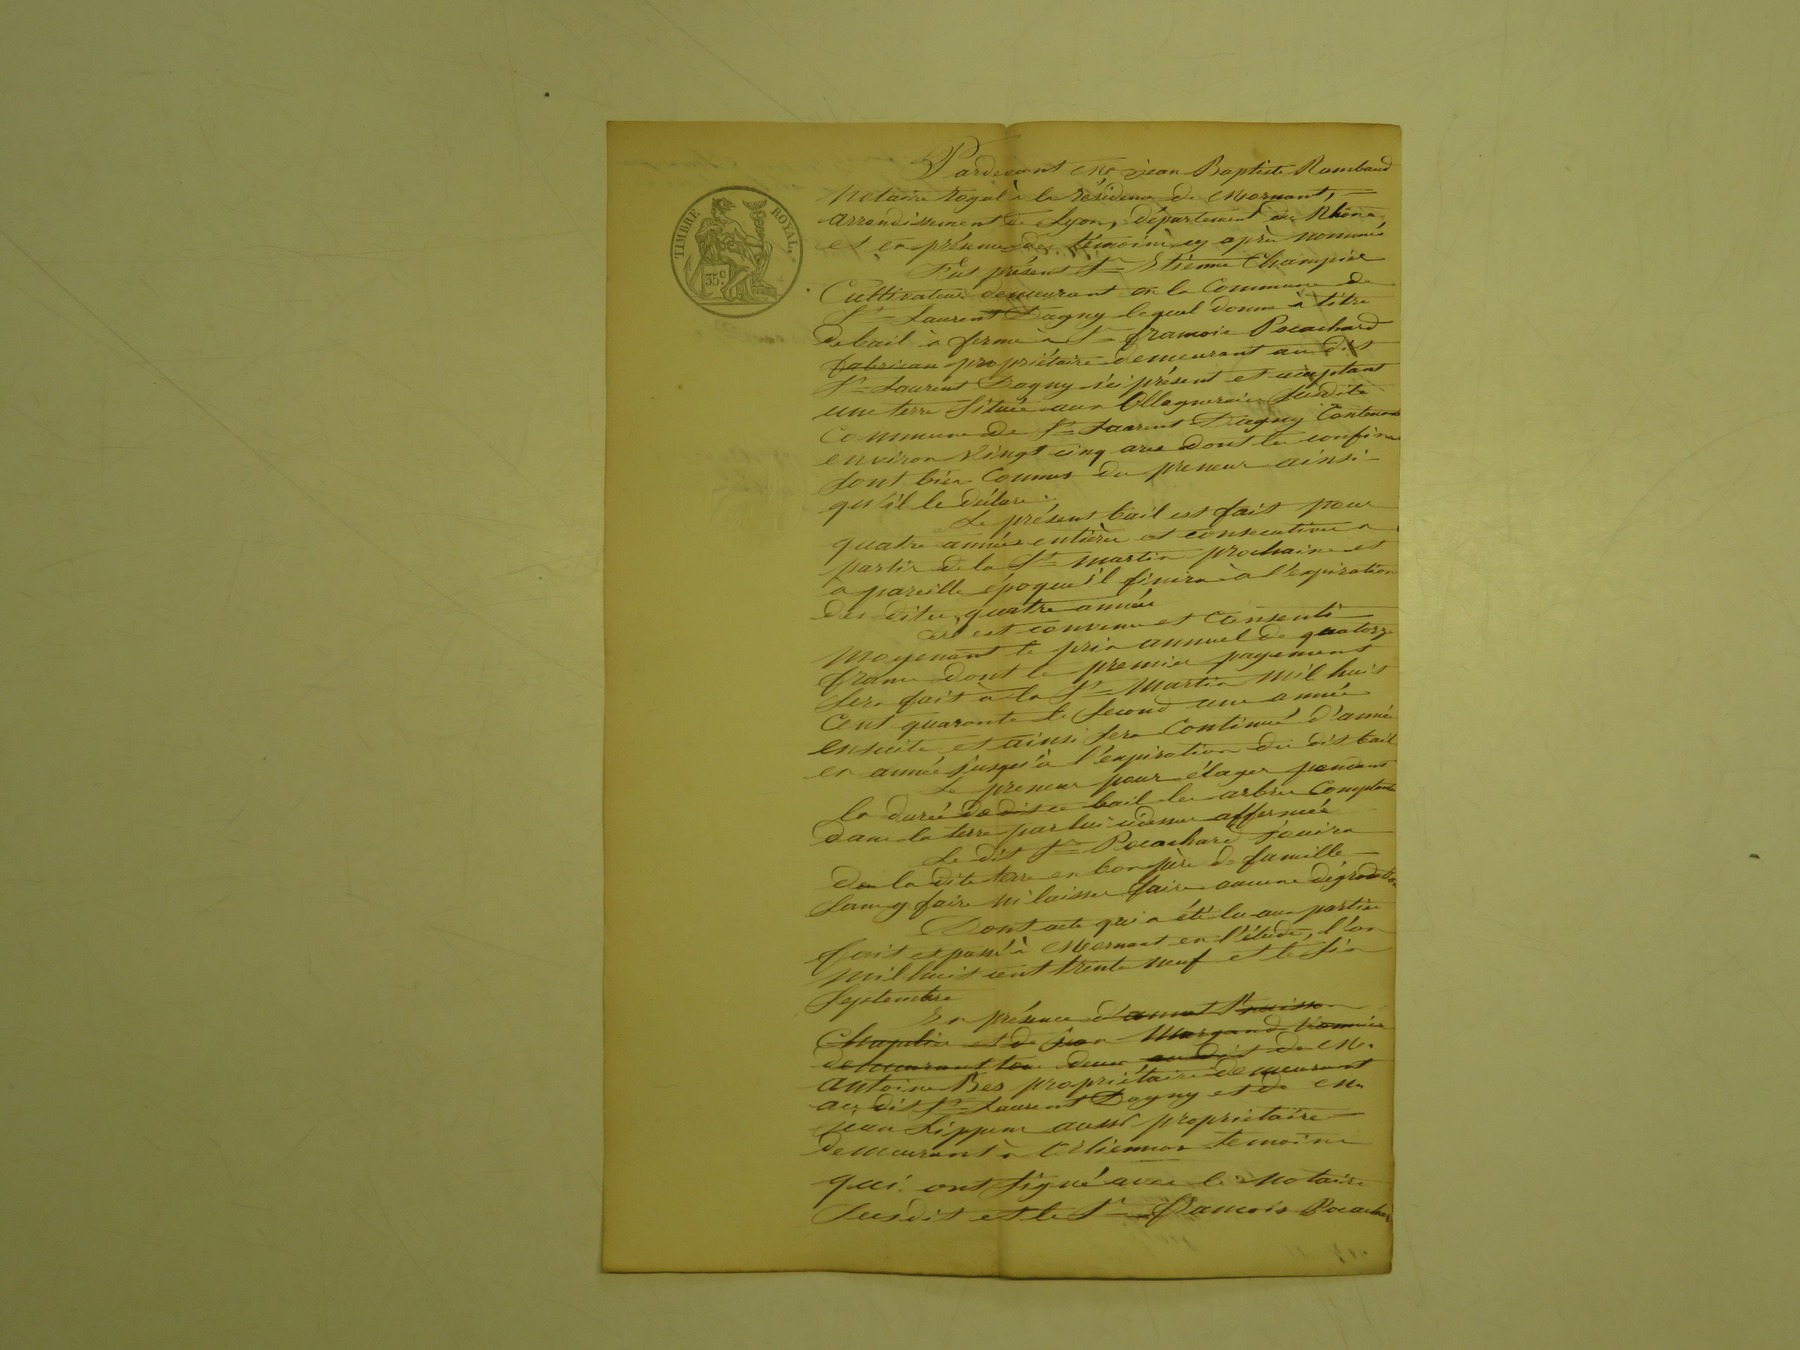 TIMBRE ROYAL.
35c.
Pardevant Me jean Baptiste Rambaud
Notaire royal à la résidence de Mornant,
arrondissement de Lyon, département du Rhône
et en présence des témoins cy après nommés
Fut présent Sr Etienne Champin
Cultivateur demeurant en la Commune de
St Laurent Dagny lequel donne à titre
de bail à ferme à Sr francois Pocachard
fabrican propriétaire demeurant au dit
St Laurent Dagny ici présent et acceptant
une terre Située aux Susdite
Commune de St Laurent Dagny Contenant
environ Vingt cinq ares dont les confins
Sont bien Connus du preneur ainsi
qu'il le déclare.
Le présent bail est fait pour
quatre années entières et consecutives a
partir de la St martin prochaine et
a pareille époque il finira à l'expiration
des dites quatre années
est convenu et consenti
moyenant le prix annuel de quatorze
francs dont le premier payement
Sera fait à la St Martin mil huit
Cent quarante le Second une année
ensuite et ainsi Sera Continué d'année
en année jusqu'à l'expiration du dit bail
Le preneur pourra élager pendant
la durée de dit ce bail les arbres
dans la terre par lui cidessus affermée
Le dit Sr Pocachard jouira
de la dite terre en bon père de famille
Sans y faire ni laisser faire aucune dégradation
Dont acte qui a été lu aux parties
fait et passé à Mornant en l'étude, l'an
mil huit cent trente neuf et le six
Septembre
En présence d'
et de jean
demeurant tous deux au dit de M.
antoine Bes propriétaire demeurant
au dit St Laurent Dagny et de M.
jean aussi propriétaire
demeurant à témoins
qui ont signé avec le Notaire
Susdit et le Sr francois Pocachar